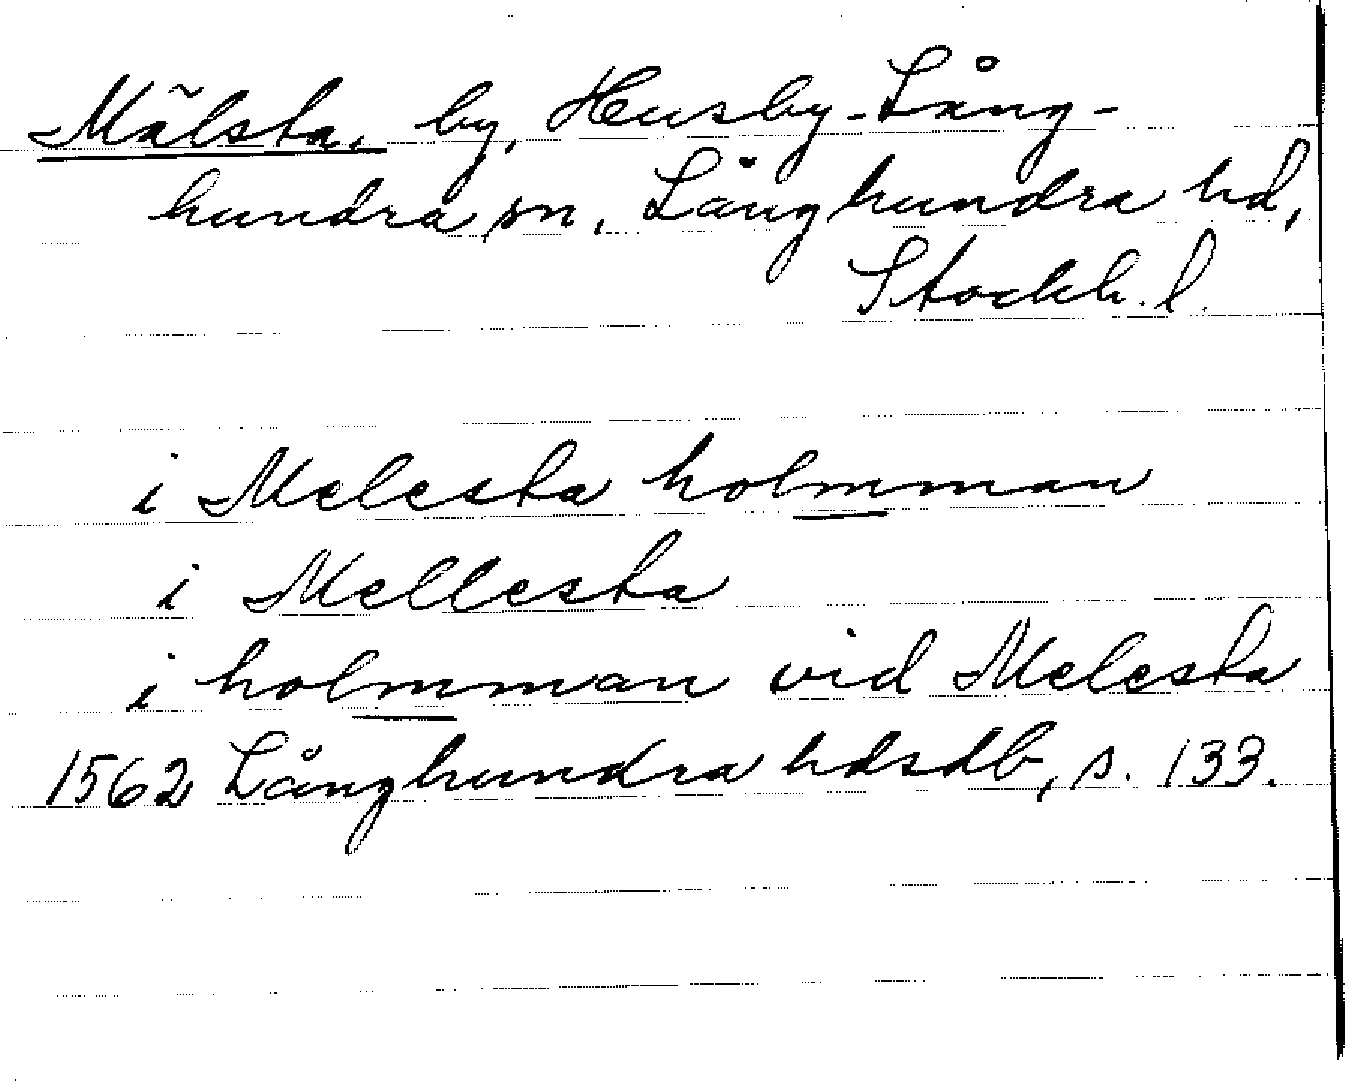 Mälsta, by, Husby-Lång-
hundra sn, Långhundra hd,
Stockh. l.
i Melesta holmman
i Mellesta
i holmman vid Melesta
1562 Långhundra hdsdb, s. 133.